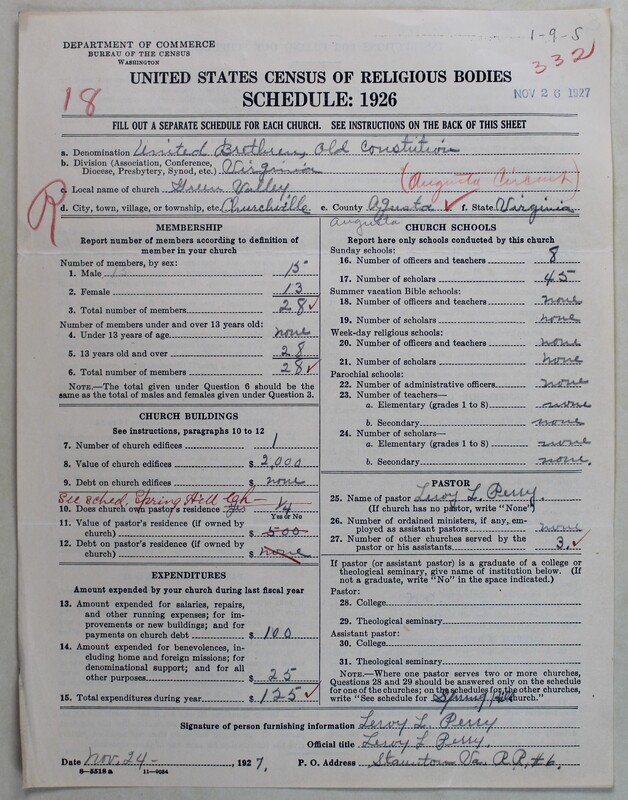 1-9-5
332
DEPARTMENT OF COMMERCE
BUREAU OF THE CENSUS
WASHINGTON
UNITED STATES CENSUS OF RELIGIOUS BODIES
18
SCHEDULE: 1926
NOV 26 1927
FILL OUT A SEPARATE SCHEDULE FOR EACH CHURCH. SEE INSTRUCTIONS ON THE BACK OF THIS SHEET
a. Denomination United Brothren, Old Constitution
b. Division (Association, Conference, Diocese, Presbytery, Synod, etc.) Virginia
(Augusta Circuit)
c. Local name of church Green Valley
R
d. City, town, village, or township, etc. Churchville e. County Agusta ✓ f. State Virginia
Augusta
MEMBERSHIP
Report number of members according to definition of
member in your church
Number of members, by sex:
1. Male 15
2. Female 13
3. Total number of members 28 ✓
Number of members under and over 13 years old:
4. Under 13 years of age none
5. 13 years old and over 28
6. Total number of members 28 ✓
NOTE.—The total given under Question 6 should be the
same as the total of males and females given under Question 3.
CHURCH BUILDINGS
See instructions, paragraphs 10 to 12
7. Number of church edifices 1
8. Value of church edifices $ 2,000
9. Debt on church edifices $ none
See sched. Spring Hill Cgh-
10. Does church own pastor's residence? yes 1/4
Yes or No
11. Value of pastor's residence (if owned by
church) $ 500
12. Debt on pastor's residence (if owned by
church) $ none
EXPENDITURES
Amount expended by your church during last fiscal year
13. Amount expended for salaries, repairs,
and other running expenses; for im-
provements or new buildings; and for
payments on church debt $ 100
14. Amount expended for benevolences, in-
cluding home and foreign missions; for
denominational support; and for all
other purposes $ 25
15. Total expenditures during year $ 125 ✓
CHURCH SCHOOLS
Report here only schools conducted by this church
Sunday schools:
16. Number of officers and teachers 8
17. Number of scholars 45
Summer vacation Bible schools:
18. Number of officers and teachers none
19. Number of scholars none
Week-day religious schools:
20. Number of officers and teachers none
21. Number of scholars none
Parochial schools:
22. Number of administrative officers none
23. Number of teachers—
a. Elementary (grades 1 to 8) none
b. Secondary none
24. Number of scholars—
a. Elementary (grades 1 to 8) none
b. Secondary none.
PASTOR
25. Name of pastor Leroy L. Perry.
(If church has no pastor, write "None")
26. Number of ordained ministers, if any, em-
ployed as assistant pastors none
27. Number of other churches served by the
pastor or his assistants 3. ✓
If pastor (or assistant pastor) is a graduate of a college or
theological seminary, give name of institution below. (If
not a graduate, write "No" in the space indicated.)
Pastor:
28. College
29. Theological seminary
Assistant pastor:
30. College
31. Theological seminary
NOTE.—Where one pastor serves two or more churches,
Questions 28 and 29 should be answered only on the schedule
for one of the churches; on the schedules for the other churches,
write "See schedule for Spring Hill church."
Signature of person furnishing information Leroy L. Perry
Official title Leroy L. Perry.
Date Nov. 24-, 1927. P. O. Address Staunton Va. R.R. #6.
8-5518a 11-9064